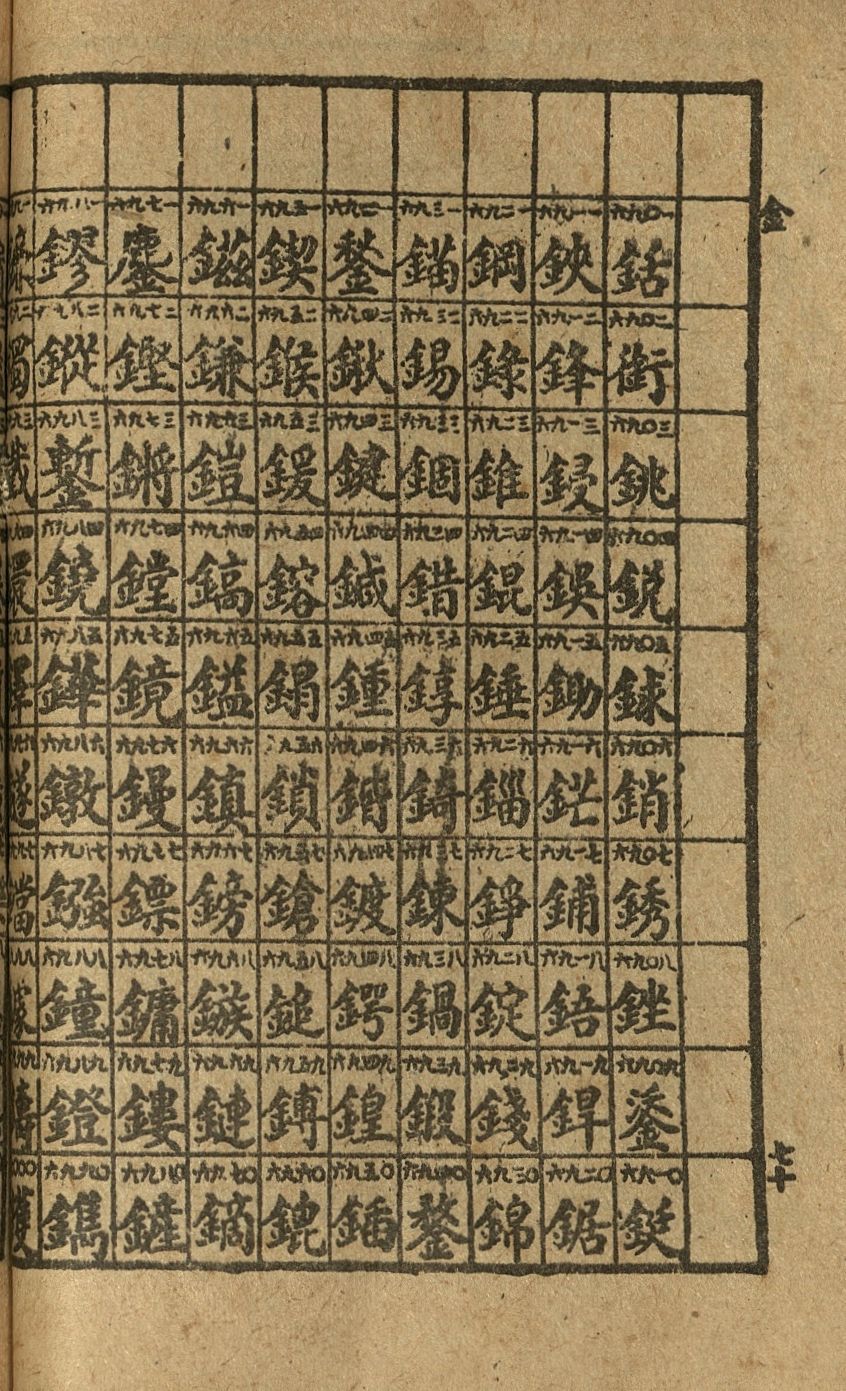 金
七十
六九〇一 銛 六九〇二 銜 六九〇三 銚 六九〇四 銳 六九〇五 銶 六九〇六 銷 六九〇七 銹 六九〇八 銼 六九〇九 鋈 六九一〇 鋌
六九一一 鋏 六九一二 鋒 六九一三 鋟 六九一四 鋘 六九一五 鋤 六九一六 鋩 六九一七 鋪 六九一八 鋙 六九一九 銲 六九二〇 鋸
六九二一 鋼 六九二二 錄 六九二三 錐 六九二四 錕 六九二五 錘 六九二六 錙 六九二七 錚 六九二八 錠 六九二九 錢 六九三〇 錦
六九三一 錨 六九三二 錫 六九三三 錮 六九三四 錯 六九三五 錞 六九三六 錡 六九三七 鍊 六九三八 鍋 六九三九 鍛 六九四〇 鍪
六九四一 鍫 六九四二 鍬 六九四三 鍵 六九四四 鍼 六九四五 鍾 六九四六 鍇 六九四七 鍍 六九四八 鍔 六九四九 鍠 六九五〇 鍤
六九五一 鍥 六九五二 鍭 六九五三 鍰 六九五四 鎔 六九五五 鋗 六九五六 鎖 六九五七 鎗 六九五八 鎚 六九五九 鎛 六九六〇 鎞
六九六一 鎡 六九六二 鎌 六九六三 鎧 六九六四 鎬 六九六五 鎰 六九六六 鎮 六九六七 鎊 六九六八 鏃 六九六九 鏈 六九七〇 鏑
六九七一 鏖 六九七二 鏗 六九七三 鏘 六九七四 鏜 六九七五 鏡 六九七六 鏝 六九七七 鏢 六九七八 鏞 六九七九 鏤 六九八〇 鏟
六九八一 鏐 六九八二 鏦 六九八三 鏨 六九八四 鐃 六九八五 鏵 六九八六 鐓 六九八七 鏹 六九八八 鐘 六九八九 鐙 六九九〇 鐫